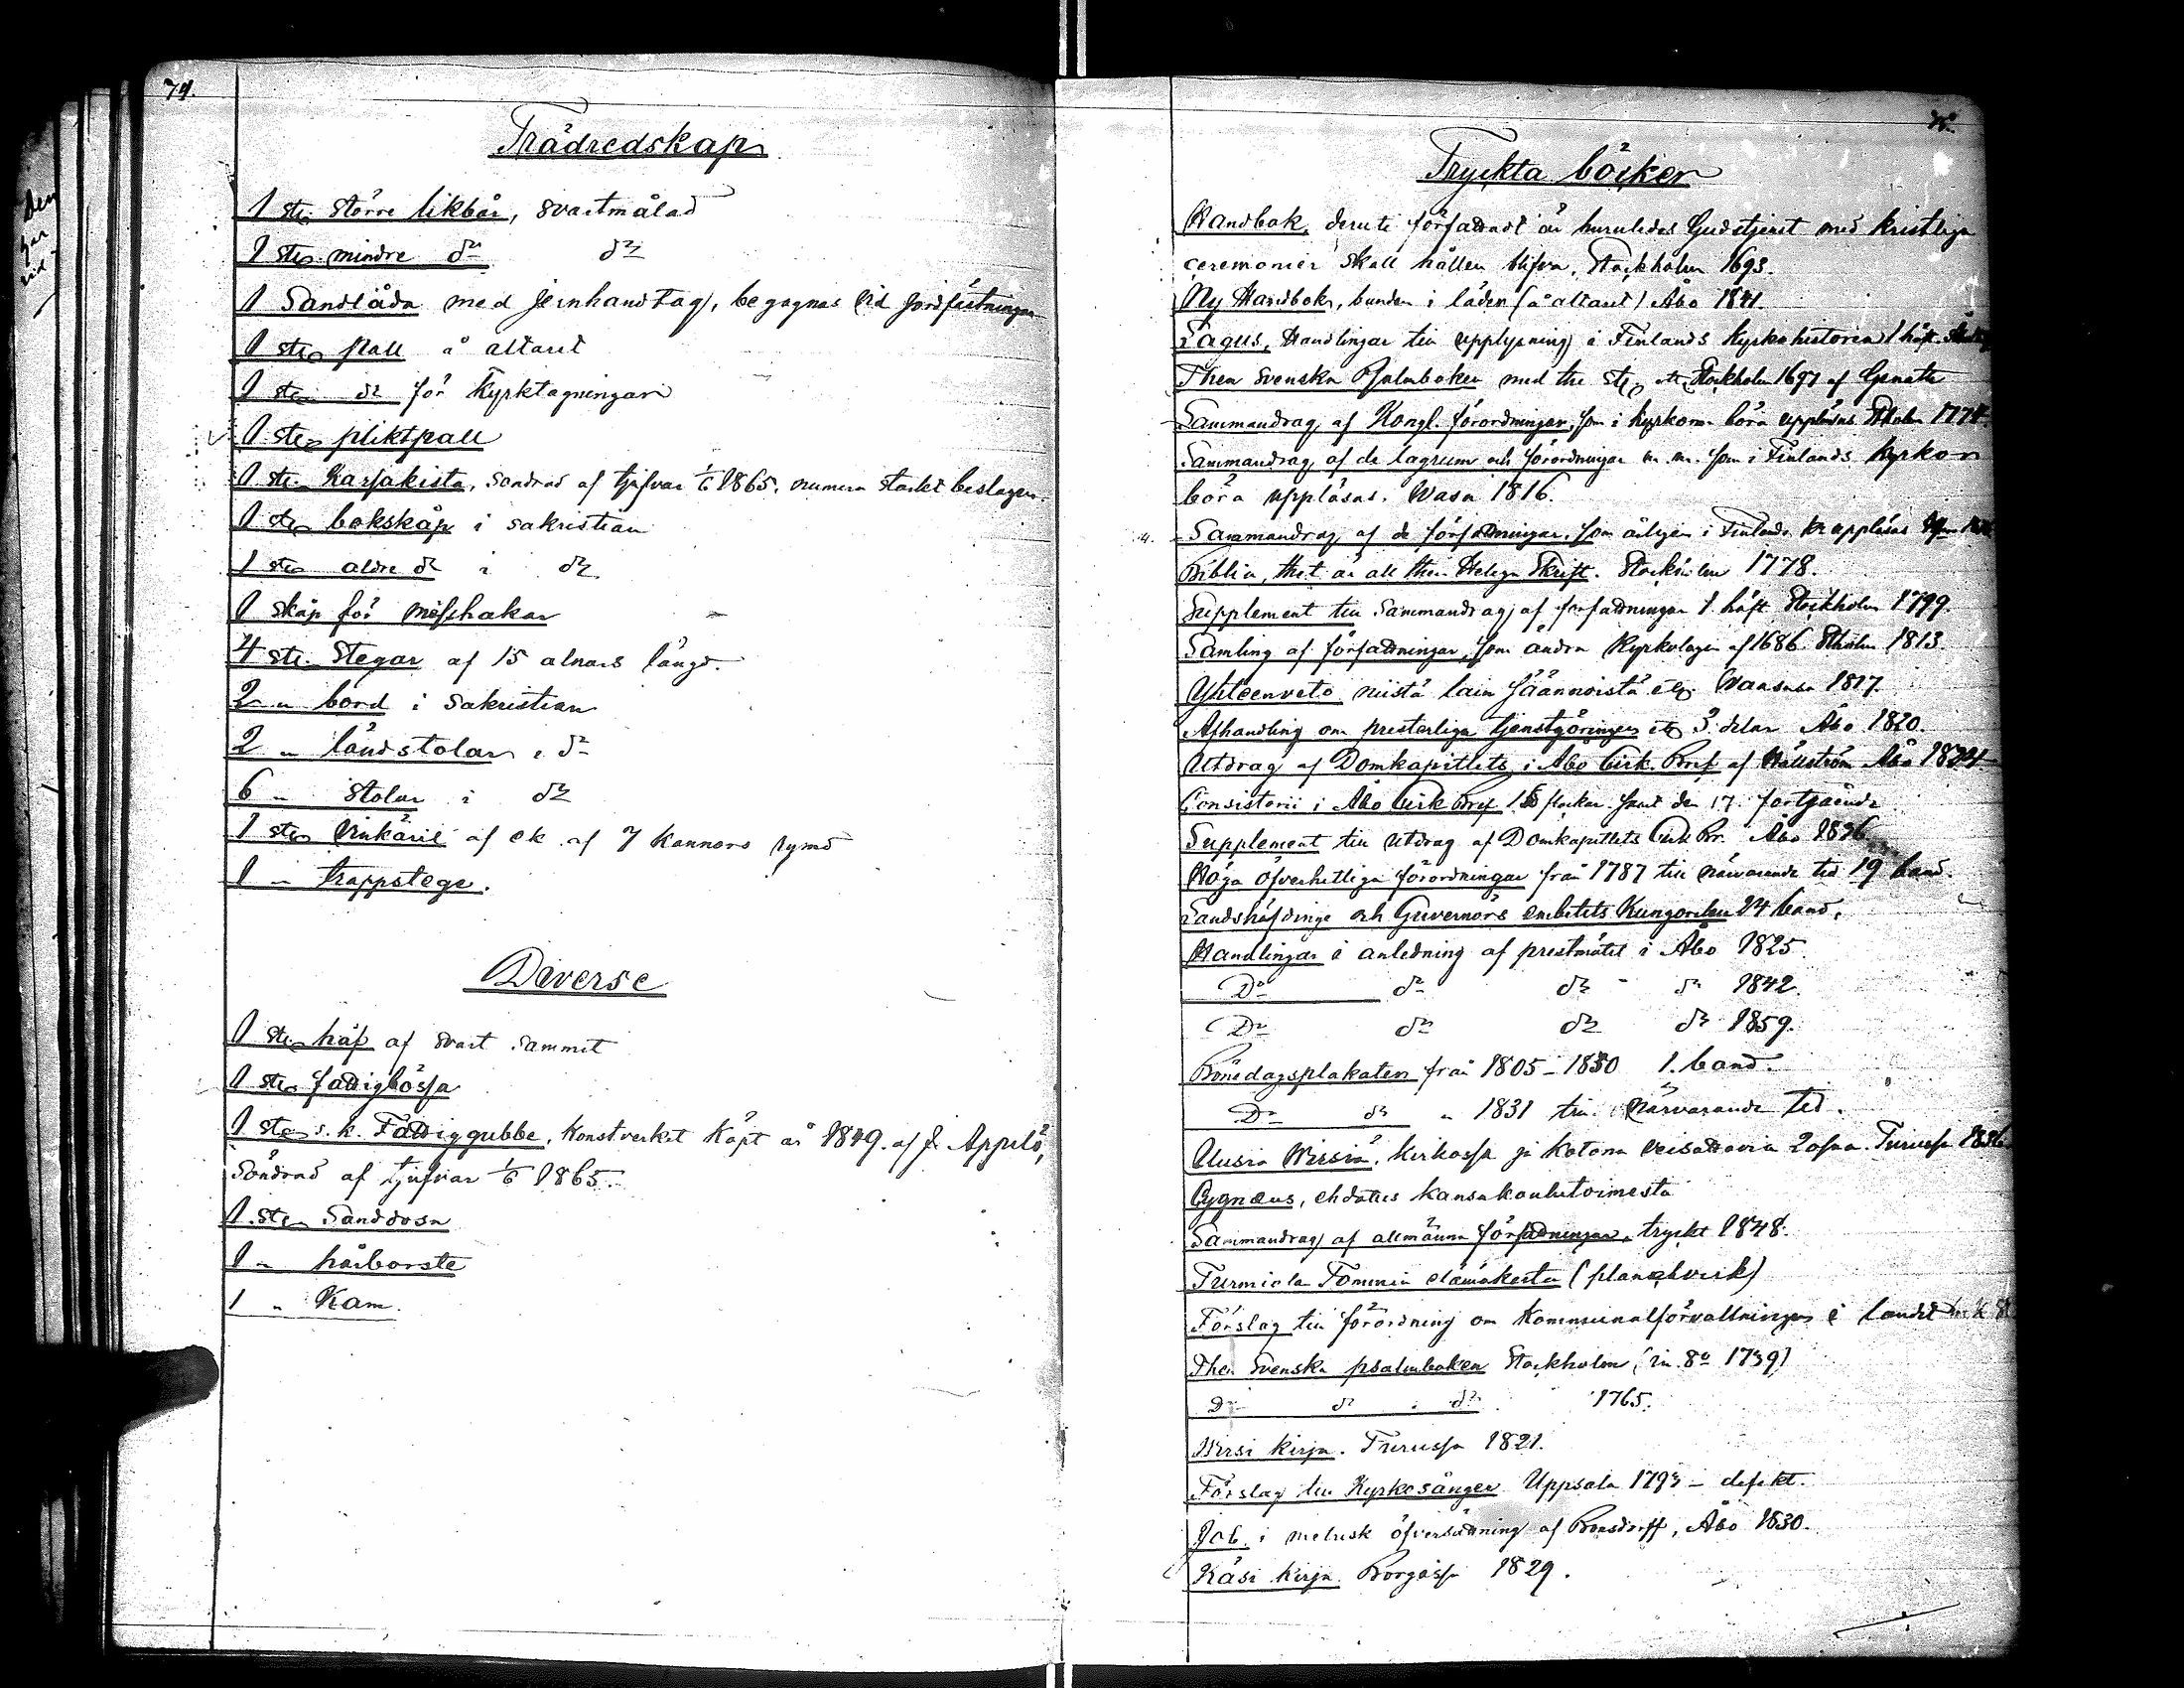 74.
Trädredskap
1 st. större likbår, svartmålad
1 st. mindre do do
1 Sandlåda med jernhandtag, begagnas vid jordfästningar
1 st. pall å altaret
1 st. do för Kyrktagningar
1 st. pliktpall
1 st. Kassakista, söndrad af tjufvar 1/6 1865, numera starkt beslagen.
1 st. bokskåp i sakristian
1 st. äldre do i do
1 skåp för mässhakar
4 st. Stegar af 15 alnars längd.
2 " bord i Sakristian
2 " länstolar i do
6 " Stolar i do
1 st. Vinkäril af ek af 7 kannors rymd
1 " trappstege.
Diverse
1 st. håf af svart sammet
1 st. fattigbössa
1 st. s.k. Fattiggubbe, Konstverket köpt år 1849 af J. Appelö,
Söndrad af tjufvar 1/6 1865.
1 st. Sanddosa
1 " hårborste
1 " Kam.
75.
Tryckta böcker
Handbok, deruti författadt är huruledes Gudstjenst med kristliga
ceremonier skall hållen blifva, Stockholm 1693.
Ny Handbok, bunden i läder (å altaret) Åbo 1841.
Lagus, Handlingar till upplysning i Finlands Kyrkohistoria 1 häft.
Then Svenska Psalmboken med the st. etc. Stockholm 1697 af Genath
Sammandrag af Kongl. förordningar, som i kyrkorna böra uppläsas Stholm 1774.
Sammandrag af de lagrum och förordningar m.m. som i Finlands kyrkor
böra uppläsas. Wasa 1816.
Sammandrag af de författningar, som årligen i Finlands k. uppläsas
Biblia, thet är all then Heliga Skrift. Stockholm 1778.
Supplement till Sammandrag af författningar 1. häft Stockholm 1799.
Samling af författningar, som ändra Kyrkolagen af 1686. Stholm 1813.
Yhteenveto niistä lain säännöistä etc. Waasasa 1817.
Afhandling om presterliga tjenstgöringen etc. 3 delar Åbo 1820.
Utdrag af Domkapitlets i Åbo Cirk. Bref af Hällström Åbo 1824
Consistorii i Åbo Cirk Bref 16 flockar samt den 17. fortgående
Supplement till Utdrag af Domkapitlets Cirk Br. Åbo 1836
Höga öfverhetliga förordningar från 1787 till närvarande tid 19 band.
Landshöfdinge och Guvernörs embetets Kungörelser 14 band.
Handlingar i anledning af prestmötet i Åbo 1825.
Do do do do 1842.
Do do do do 1859.
Bönedagsplakater från 1805-1830 1. band.
Do do " 1831 till närvarande tid.
Uusia Wirsiä, kirkossa ja kotona veisattavia 2 osaa. Turussa 1836
Cygnæus, ehdotus kansakoulutoimesta
Sammandrag af allmänna författningar, tryckt 1848.
Turmiola Tommin elämäkerta (planchverk)
Förslag till förordning om Kommunalförvaltningen å landet
Then Svenska psalmboken Stockholm (in 8o 1739)
Do do do 1765.
Wirsi kirja. Turussa 1821.
Förslag till Kyrkosånger Uppsala 1793 - defekt.
Job i metrisk öfversättning af Bonsdorff, Åbo 1830.
Käsi kirja Borgåssa 1829.